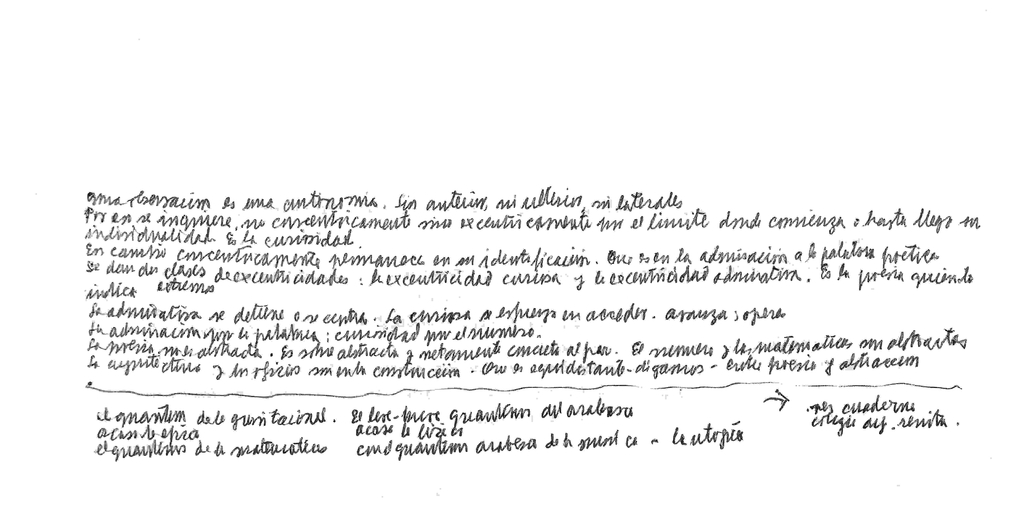 una observación es una autonomía. Sin anterior, ni ulterior, ni laterales
Por en se inquiere, no concentricamente sino excentricamente por el limite donde comienza o hasta llega su
individualidad. Es la curiosidad.
En cambio concentricamente permanece en su identificación. Que es en la admiración a la palabra poética
se dan dos clases de excentricidades: la excentricidad curiosa y la excentricidad admirativa. Es la poesía quien lo
indica extremos
La admirativa se detiene o se centra. La curiosa se esfuerza en acceder. avanza; opera
La admiración por la palabra; curiosidad por el número.
La poesía no es abstracta. Es sobre abstracta y netamente concreta al par. El número y las matemáticas son abstractas
La arquitectura y los oficios son en la construcción. Que es equidistante - digamos - entre poesía y abstracción
el quantum de lo gravitacional. El quantum del arabesco
acaso la épica acaso la
el quantum de la matemática quantum arabesco de la música - la utopía
→ cuaderno